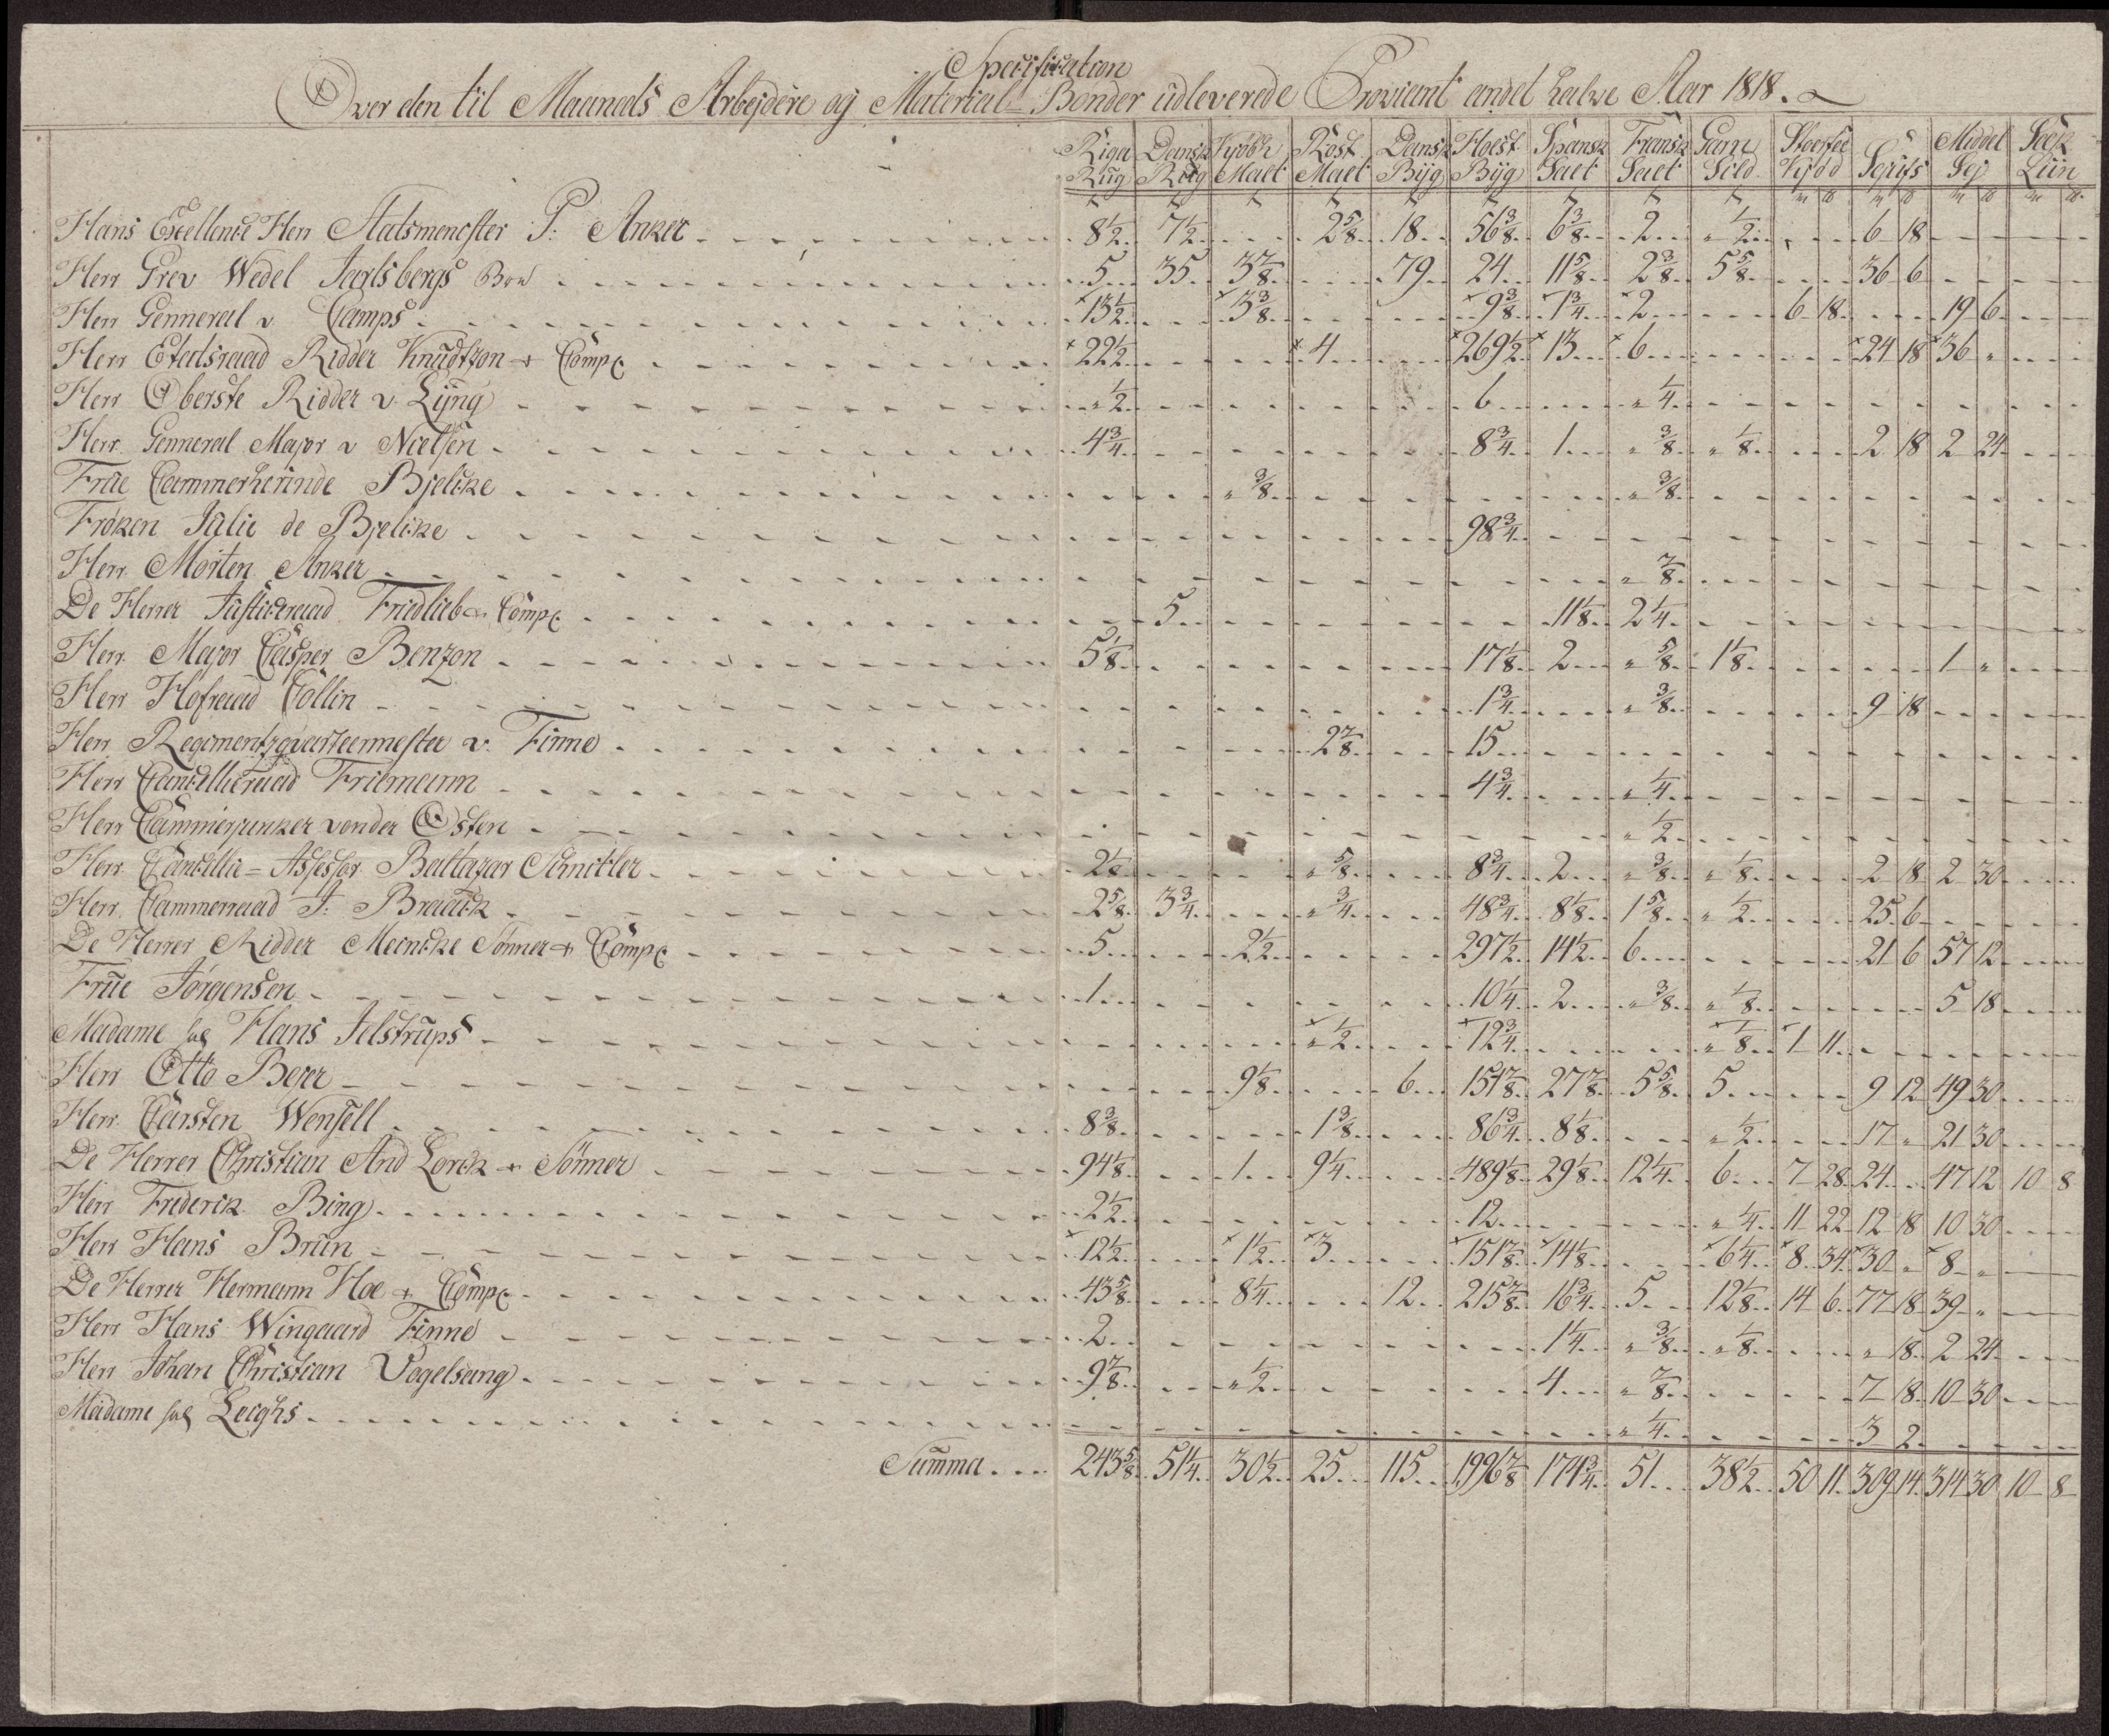 Specification
Over den til Maaneds Arbejdere og Material=Bønder udleverede Proviant andet halve Aar 1818.
Riga Rug Dansk Rug Kjøbh Malt Rost Malt Dansk Byg Hoest Byg Spansk Salt Fransk Salt Garn Sild Kjød Grafs Middel Sej Liin
Hans Excellence Herr Statsmenester P: Anker 8½ 7½ 2⅝ 18 56⅜ 6⅜ 2 " ½ 6 18
Herr Grev Wedel Jarlsbergs Boe 5 35 3⅞ 79 24 11⅝ 2⅜ 5⅝ 36 6
Herr Genneral v Camps ×13½ ×3⅜ ×9¾ ×1¾ ×2 6 18 19 6
Herr Etatsraad Ridder Knudtzon & Comp ×22½ ×4 ×269½ ×13 ×6 ×24 18 ×36 "
Herr Oberste Ridder v. Lyng " ½ 6 " ¼
Herr Genneral Major v Nielsen 4¾ 8¾ 1 " ⅜ " ⅛ 2 18 2 24
Frue Cammerherinde Bjelcke " ⅜ " ⅜
Frøken Julie de Bjelcke 98¾
Herr Morten Anker " ⅞
De Herrer Justiceraad Friedlieb & Comp 5 11⅛ 2¼
Herr Major Casper Benzon 5⅛ 17⅛ 2 " ⅝ 1⅛ 1 "
Herr Hofraad Collin 1¾ " ⅜ 9 18
Herr Regimentzqvarteermester v. Finne 2⅞ 15
Herr Cancellieraad Friemann 4¾ " ¼
Herr Cammerjunker vonder Osten " ½
Herr Cancellie=Assessor Baltazar Schnitler 2⅛ " ⅝ 8¾ 2 " ⅜ " ⅛ 2 18 2 30
Herr Cammerraad J: Braack 2⅝ 3¾ " ¾ 48¾ 8⅛ 1⅝ " ½ 25 6
De Herrer Ridder Meincke Sønner & Comp 5 2½ 297½ 14½ 6 21 6 57 12
Frue Jørgensen 1 10¼ 2 " ⅜ " ⅛ 5 18
Madame sal Hans Jelstrups ×" ½ ×12¾ ×" ⅛ ×1 11
Herr Otto Beer 9⅛ 6 151⅞ 27⅞ 5⅝ 5 9 12 49 30
Herr Carsten Wensell 8⅜ 1⅜ 86¾ 8⅛ " ½ 17 " 21 30
De Herrer Christian And Lorck & Sønner 94⅛ 1 9¼ 489⅛ 29⅛ 12¼ 6 7 28 24 47 12 10 8
Herr Frederik Bing 2½ 12 " ¼ 11 22 12 18 10 30
Herr Hans Brun ×12½ ×1½ ×3 ×151⅞ ×14⅛ ×6¼ ×8 34 ×30 " ×8 "
De Herrer Hermann Hoe & Comp 43⅝ 8¼ 12 215⅞ 16¾ 5 12⅛ 14 6 77 18 39 "
Herr Hans Wingaard Finne 2 1¼ " ⅜ " ⅛ " 18 2 24
Herr Johan Christian Vogelsang 9⅞ " ½ 4 " ⅞ 7 18 10 30
Madame sal Leighs " ¼ 3 2
Summa 243⅝ 51¼ 30½ 25 115 1996⅞ 174¾ 51 38½ 50 11 309 14 314 30 10 8